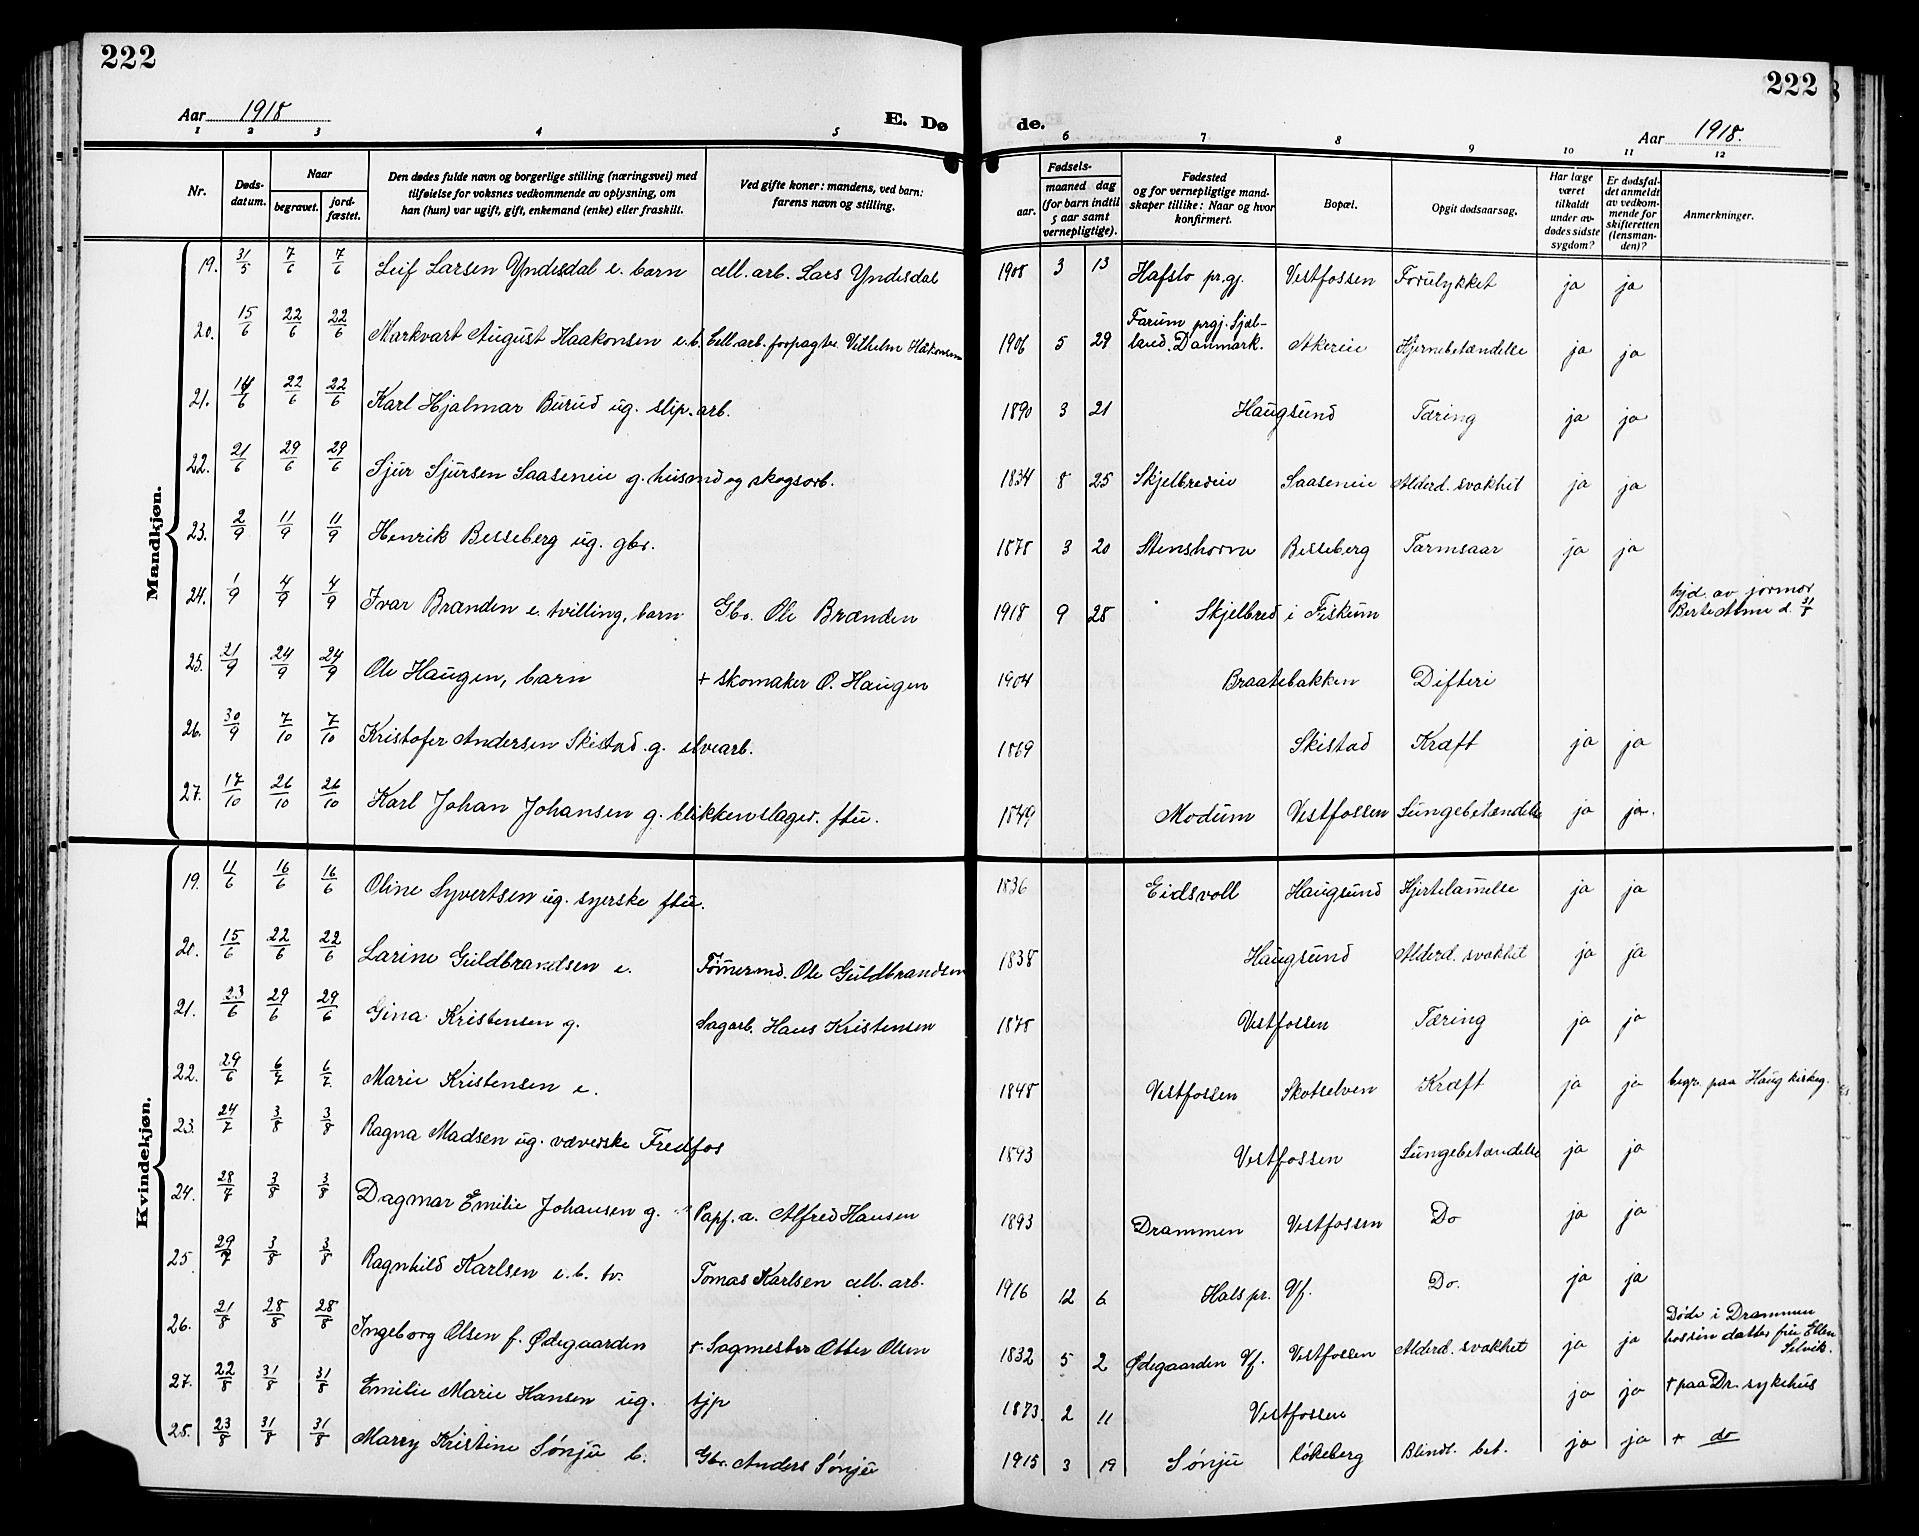 222
Aar 1918
E. Dø
1 2 3 4 5
Nr.
Døds-
datum.
Naar
begravet.
jord-
fæstet.
Den dødes fulde navn og borgerlige stilling (næringsvei) med
tilføielse for voksnes vedkommende av oplysning, om
han (hun) var ugift, gift, enkemand (enke) eller fraskilt.
Ved gifte koner: mandens, ved barn:
farens navn og stilling.
222
de.
Aar 1918.
6 7 8 9 10 11 12
Fødsels-
aar.
maaned dag
(for barn indtil
5 aar samt
vernepligtige).
Fødested
og for vernepligtige mand-
skaper tillike: Naar og hvor
konfirmert.
Bopæl.
Opgit dødsaarsag.
Har læge
været
tilkaldt
under av-
dødes sidste
sygdom?
Er dødsfal-
det anmeldt
av vedkom-
mende for
skifteretten
(lensman-
den)?
Anmerkninger.
Mandkjøn.
19. 31/5 7/6 7/6 Leif Larsen Yndesdal e. barn cell. arb. Lars Yndesdal 1908 3 13 Hafslo pr.gj. Vestfossen Forulykket ja ja
20. 15/6 22/6 22/6 Markvart August Haakonsen e.b. Cell. arb. forpagter Vilhelm Haakonsen 1906 5 29 Farum prgj. Sjæl-
land. Danmark. Akereie Hjernebetændelse ja ja
21. 14/6 22/6 22/6 Karl Hjalmar Burud ug. slip. arb. 1890 3 21 Haugsund Tæring ja ja
22. 21/6 29/6 29/6 Sjur Sjursen Saaseneie g. husmd og skogsarb. 1834 8 25 Skjelbredeie Saaseneie Alderd. svakhet ja ja
23. 2/9 11/9 11/9 Henrik Besseberg ug. gbr. 1878 3 20 Stenshorn Besseberg Tarmsaar ja ja
24. 1/9 4/9 4/9 Ivar Brænden e. tvilling, barn Gbr. Ole Brænden 1918 9 28 Skjelbred i Fiskum hjd. av jormor
Berte Anne d. 31/8
25. 21/9 24/9 24/9 Ole Haugen, barn + skomaker O. Haugen 1904 Braatebakken Difteri
26. 30/9 7/10 7/10 Kristofer Andersen Skistad g. elvearb. 1869 Skistad Kræft ja ja
27. 17/10 26/10 26/10 Karl Johan Johansen g. blikkenslager. ftu. 1849 Modum Vestfossen Lungebetændelse ja ja.
Kvindekjøn.
19. 11/6 16/6 16/6 Oline Syvertsen ug. syerske ftu. 1836 Eidsvoll Haugsund Hjertelamelse ja ja
20. 15/6 22/6 22/6 Larine Guldbrandsen e. Tømermd. Ole Guldbrandsen 1838 Haugsund Alderd. svakhet ja ja
21. 23/6 29/6 29/6 Gina Kristensen g. Sagarb. Hans Kristensen 1878 Vestfossen Tæring ja ja
22. 29/6 6/7 6/7 Marie Kristensen e. 1848 Vestfossen Skotselven Kræft ja ja begr. paa Haug kirkeg.
23. 24/7 3/8 3/8 Ragna Madsen ug. væverske Fredfos 1893 Vestfossen Lungebetændelse ja ja
24. 28/7 3/8 3/8 Dagmar Emilie Johansen g. Papf. a. Alfred Hansen 1893 Drammen Vestfossen Do ja ja
25. 29/7 3/8 3/8 Ragnhild Karlsen e. b. tv. Tomas Karlsen cell. arb. 1916 12 6 Hals pr. Vf. Do. ja ja
26. 21/8 28/8 28/8 Ingeborg Olsen f. Ødegaarden + Sagmester Otter Olsen 1832 5 2 Ødegaarden Vf. Vestfossen Alderd. svakhet ja ja Døde i Drammen
hossin datter fru Ellen
Selvik.
27. 22/8 31/8 31/8 Emilie Marie Hansen ug. tjp 1873. 2 11 Vestfossen ja ja + paa Dr. sykehus
28. 23/8 31/8 31/8 Marry Kristine Sønju b. Gbr. Anders Sønju 1915 3 19 Sønju Røkeberg Blindt. bet. ja ja + do